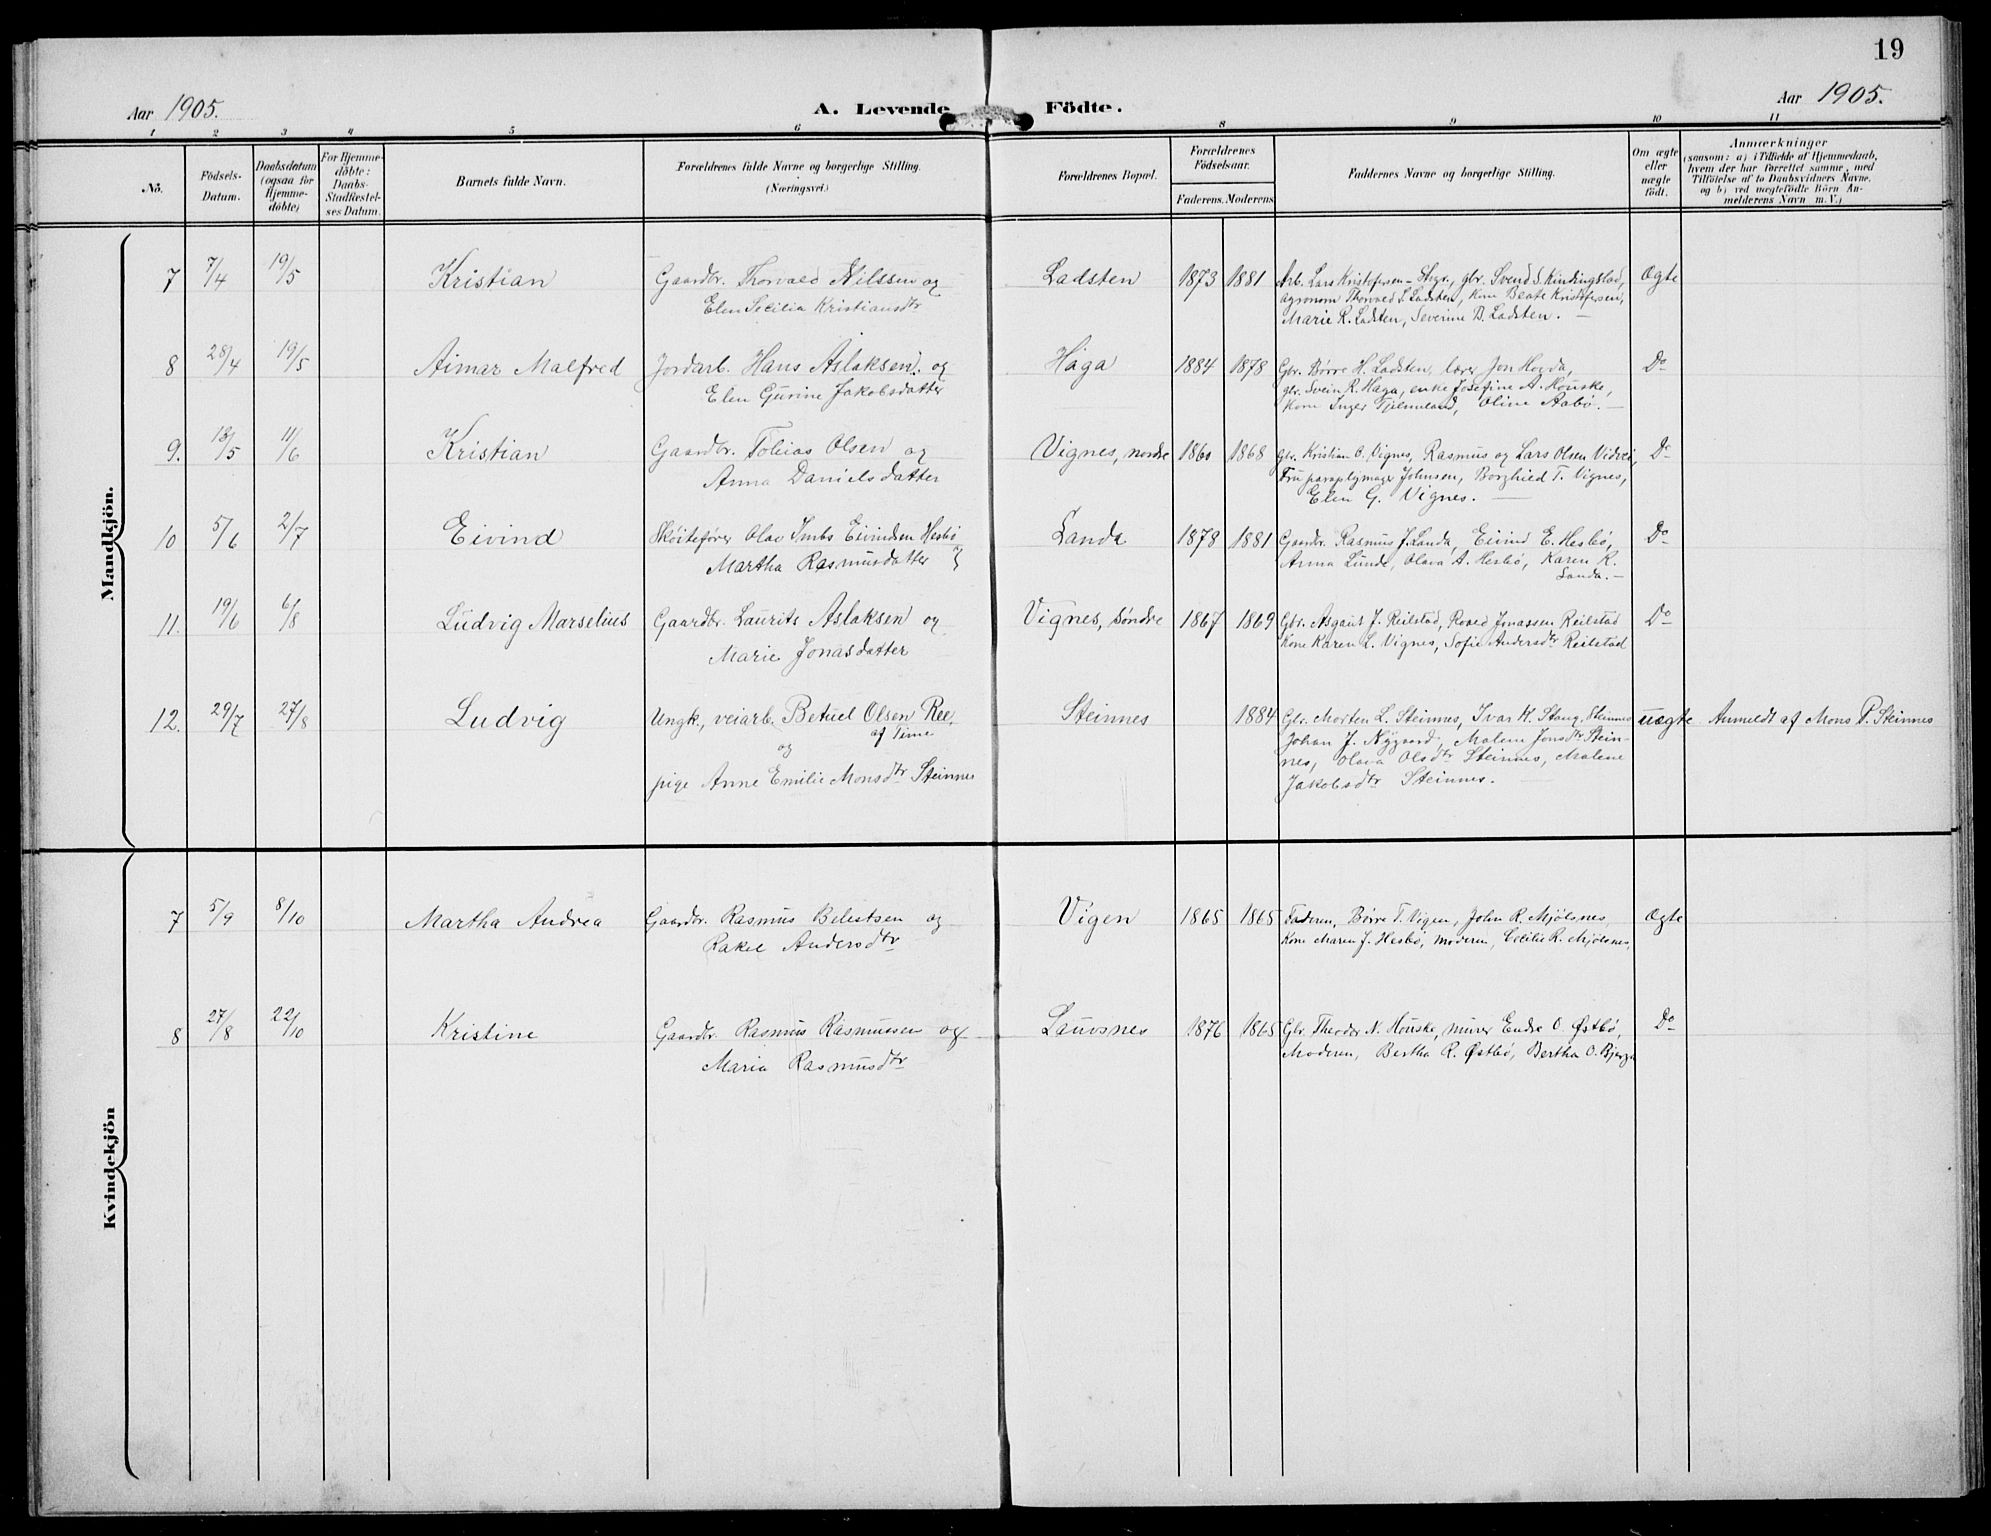 19
Aar 1905.
A. Levende Födte.
Aar 1905.
1 2 3 4 5 6 8 9 10 11
No.
Födsels-Datum.
Daabsdatum (ogsaa for Hjemme-döbte)
For Hjemme-döbte: Daabs-Stadfestel-ses Datum.
Barnets fulde Navn.
Forældrenes fulde Navne og borgerlige Stilling. (Næringsvei.)
Forældrenes Bopæl.
Forældrenes Födselsaar.
Faderens. Moderens
Faddernes Navne og borgerlige Stilling.
Om ægte eller uægte födt.
Anmærkninger
(saasom: a) i Tilfælde af Hjemmedaab,
hvem der har forrettet samme, med
Tilföielse af to Daabsvidners Navne,
og b) ved uægtefödte Börn An-
melderens Navn m. V.)
Mandkjön.
7 7/4 19/5 Kristian Gaardbr. Thorvald Nilssen og Ladsten 1873 1881 Arb. Lars Kristofersen - gbr. Svend S. Kindingstad, Ægte
Elen Secilia Kristiansdtr agronom Thorvald S. Ladsten, Kone Beate Kristofersen,
Marie R. Ladsten, Severine B. Ladsten. —
8 28/4 19/5 Aimar Malfred Jordarb. Hans Aslaksen. og Haga 1884 1878 Gbr. Børre H. Ladsten, lærer Jon Hovda, Do
Elen Gurine Jakobsdatter gbr. Svein R. Haga, enke Josefine A. Houske,
Kone Inger Tjelmeland, Oline Aabø. —
9. 18/5 11/6 Kristian Gaardbr. Tobias Olsen og Vignes, nordre 1860 1868 Gbr. Kristian O. Vignes, Rasmus og Lars Olsen Do
Anna Danielsdatter Fru paraplymager Johnsen, Borghild T. Vignes,
Elen G. Vignes. —
10 5/6 2/7 Eivind Skøitefører Olav Eivindsen Hesbø Landa 1878 1881 Gaardbr. Rasmus J. Landa, Eivind E. Hesbø, Do
Martha Rasmusdatter Anna Lunde, Olava A. Hesbø, Karen R.
Landa. —
11. 19/6 6/8 Ludvig Marselius Gaardbr. Laurits Aslaksen og Vignes, søndre 1867 1869 Gbr. Asgaut J. Reilstad, Jonassen Reilstad Do
Marie Jonasdatter Kone Karen L. Vignes, Sofie Andersdtr Reilstad
12. 29/7 27/8 Ludvig Ungk., veiarb. Betuel Olsen Ree, Steinnes 1884 Gbr. Morten L. Steinnes, Ivar H. Stang Steinnes uægte Anmeldt af Mons P. Steinnes
af Time Johan J. Nygaard, Malene Jonsdtr Stein-
og nes, Olava Olsdtr Steinnes, Malene
pige Anne Emilie Monsdtr Steinnes Jakobsdtr Steinnes.
Kvindekjön
7 5/9 8/10 Martha Andrea Gaardbr. Rasmus Belestsen og Vigen 1865 1865 Faderen, Børre T. Vigen, John R. Mjølsnes Ægte
Rakel Andersdtr Kone Maren J. Hesbø, Moderen, Cecilie R. Mjølsnes,
8 27/8 22/10 Kristine Gaardbr. Rasmus Rasmussen og Lauvsnes 1876 1865 Gbr. Theodor N. Houske, murer Endre O. Østbø, Do
Maria Rasmusdtr Moderen, Bertha R. Østbø, Bertha O. Bjerga